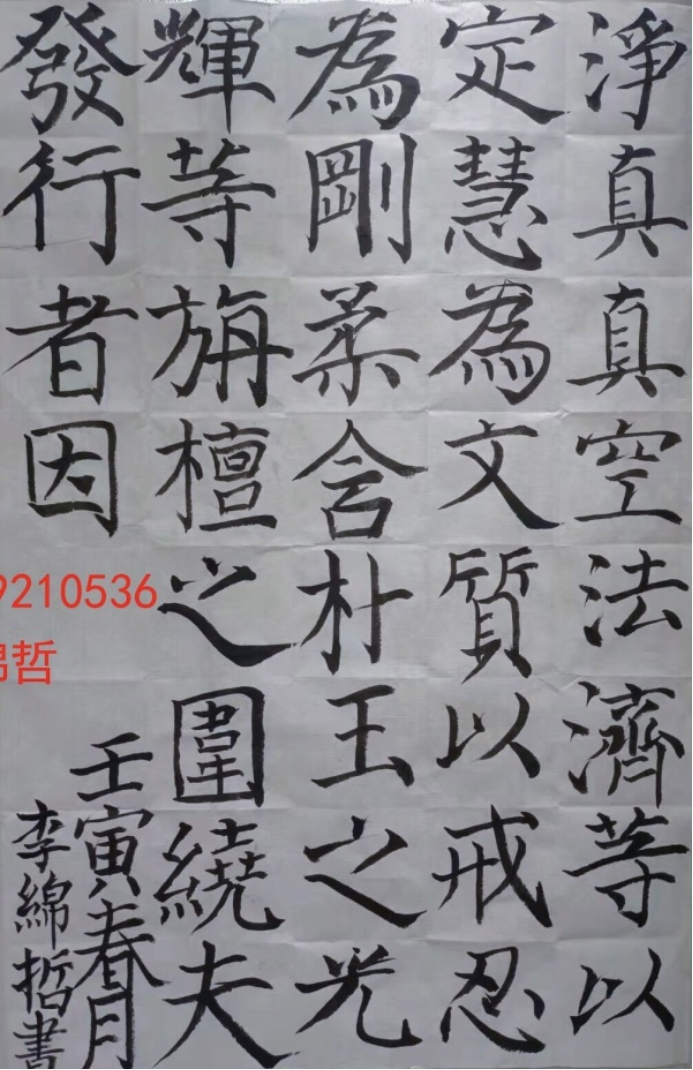 淨真真空法濟等以
定慧為文質以戒忍
為剛柔含朴王之光
輝等旃檀之圍繞夫
發行者因
壬寅春月
李綿哲書
9210536
綿哲